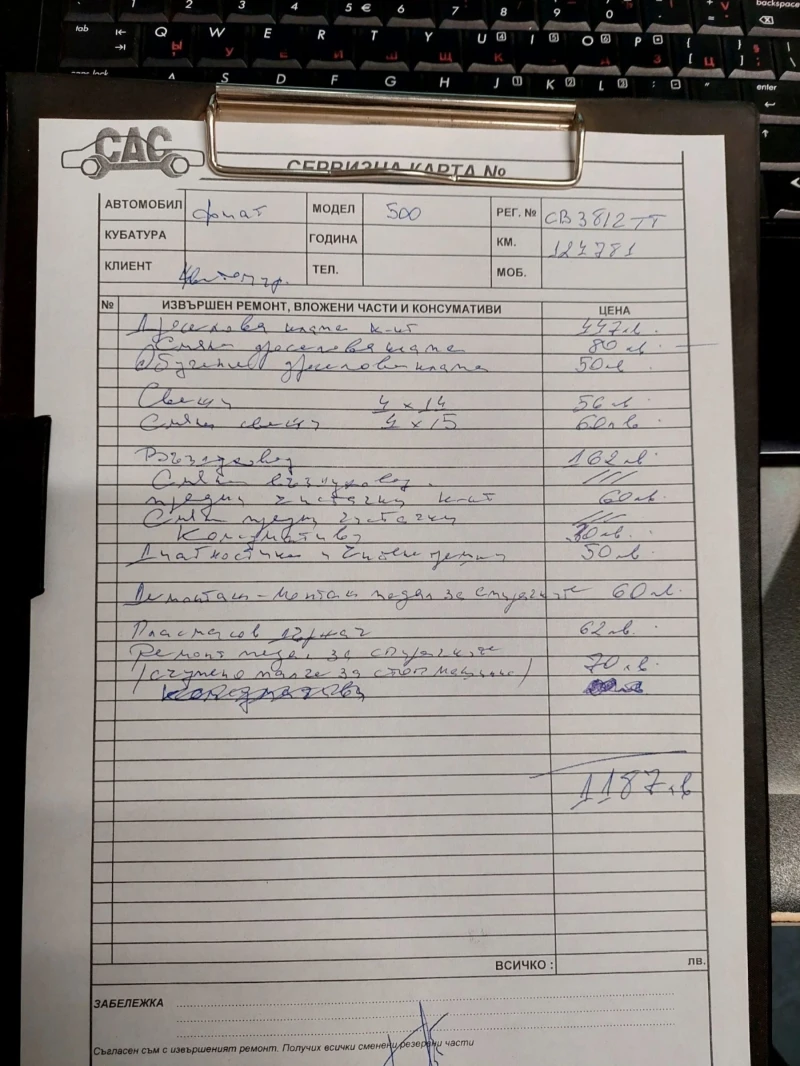 5 € 6 7 8 9 0
backspace
tab Q W E R T Y U I O P
caps lock A S D F G H J K L
enter
САС
СЕРВИЗНА КАРТА №
АВТОМОБИЛ фиат МОДЕЛ 500 РЕГ. № СВ3812ТТ
КУБАТУРА ГОДИНА КМ. 124781
КЛИЕНТ ТЕЛ. МОБ.
№ ИЗВЪРШЕН РЕМОНТ, ВЛОЖЕНИ ЧАСТИ И КОНСУМАТИВИ ЦЕНА
Дроселова клапа к-кт 447лв.
Смяна дроселова клапа 80лв.
Обучение дроселова клапа 50лв
Свещи 4 x 14 56лв.
Смяна свещи 4 x 15 60лв
Въздуховод 162лв.
Смяна въздуховод. ///
предни чистачки к-кт 60лв.
Смяна предни чистачки ///
Консумативи 30лв.
Диагностика и 50лв.
Демонтаж-Монтаж педал за спирачките 60лв.
Пластмасов държач 62лв.
Ремонт педал за спирачките
(счупено палче за стоп машина) 70лв.
1187лв
ВСИЧКО : лв.
ЗАБЕЛЕЖКА
Съгласен съм с извършеният ремонт. Получих всички сменени резервни части